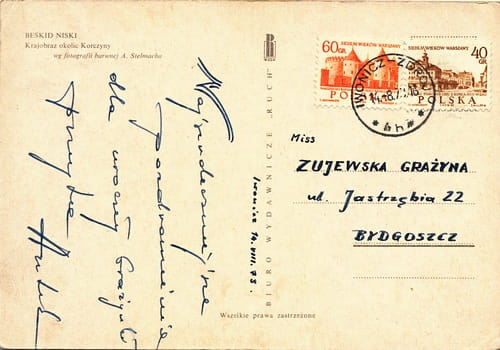 BESKID NISKI
Krajobraz okolic Korczyny
wg fotografii barwnej A. Stelmacha
Najserdeczniejsze
pozdrowienia
dla uroczej Grażynki
Iwonicz 14.VIII.73.
BIURO WYDAWNICZE „RUCH”
Wszelkie prawa zastrzeżone
60 GR.
SIEDEM WIEKÓW WARSZAWY
POLSKA
40 GR.
SIEDEM WIEKÓW WARSZAWY
POLSKA
IWONICZ-ZDRÓJ
Miss
ZUJEWSKA GRAŻYNA
ul. Jastrzębia 22
BYDGOSZCZ